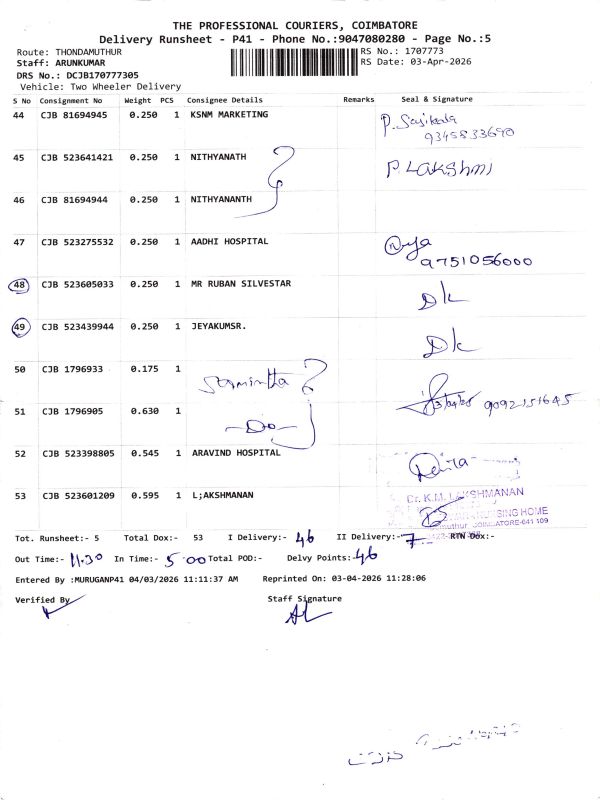 THE PROFESSIONAL COURIERS, COIMBATORE
Delivery Runsheet - P41 - Phone No.:9047080280 - Page No.:5
Route: THONDAMUTHUR RS No.: 1707773
Staff: ARUNKUMAR RS Date: 03-Apr-2026
DRS No.: DCJB170777305
Vehicle: Two Wheeler Delivery
S No Consignment No Weight PCS Consignee Details Remarks Seal & Signature
44 CJB 81694945 0.250 1 KSNM MARKETING
9345833690
45 CJB 523641421 0.250 1 NITHYANATH P LAKSHMI
46 CJB 81694944 0.250 1 NITHYANANTH
47 CJB 523275532 0.250 1 AADHI HOSPITAL
9751056000
48 CJB 523605033 0.250 1 MR RUBAN SILVESTAR Dk
49 CJB 523439944 0.250 1 JEYAKUMSR. Dk
50 CJB 1796933 0.175 1
51 CJB 1796905 0.630 1 -Do- 9092151645
52 CJB 523398805 0.545 1 ARAVIND HOSPITAL
53 CJB 523601209 0.595 1 L;AKSHMANAN
Dr. K.M. LAKSHMANAN
NURSING HOME
COIMBATORE-641 109
Tot. Runsheet:- 5 Total Dox:- 53 I Delivery:- 46 II Delivery:- 7 RTN Dox:-
Out Time:- 11.30 In Time:- 5.00 Total POD:- Delvy Points:- 46
Entered By :MURUGANP41 04/03/2026 11:11:37 AM Reprinted On: 03-04-2026 11:28:06
Verified By Staff Signature